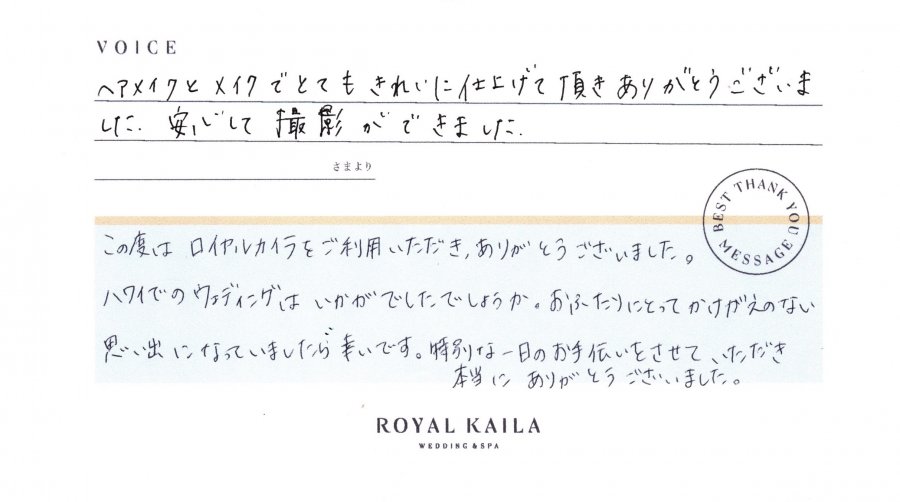 VOICE
ヘアメイクとメイクでとてもきれいに仕上げて頂きありがとうございま
した. 安心して 撮影ができました.
さまより
BEST THANK YOU MESSAGE
この度は ロイヤルカイラをご利用いただき,ありがとうございました。
ハワイでのウェディングは いかがでしたでしょうか。おふたりにとってかけがえのない
思い出になっていましたら幸いです。特別な一日のお手伝いをさせていただき
本当に ありがとうございました。
ROYAL KAILA
WEDDING & SPA